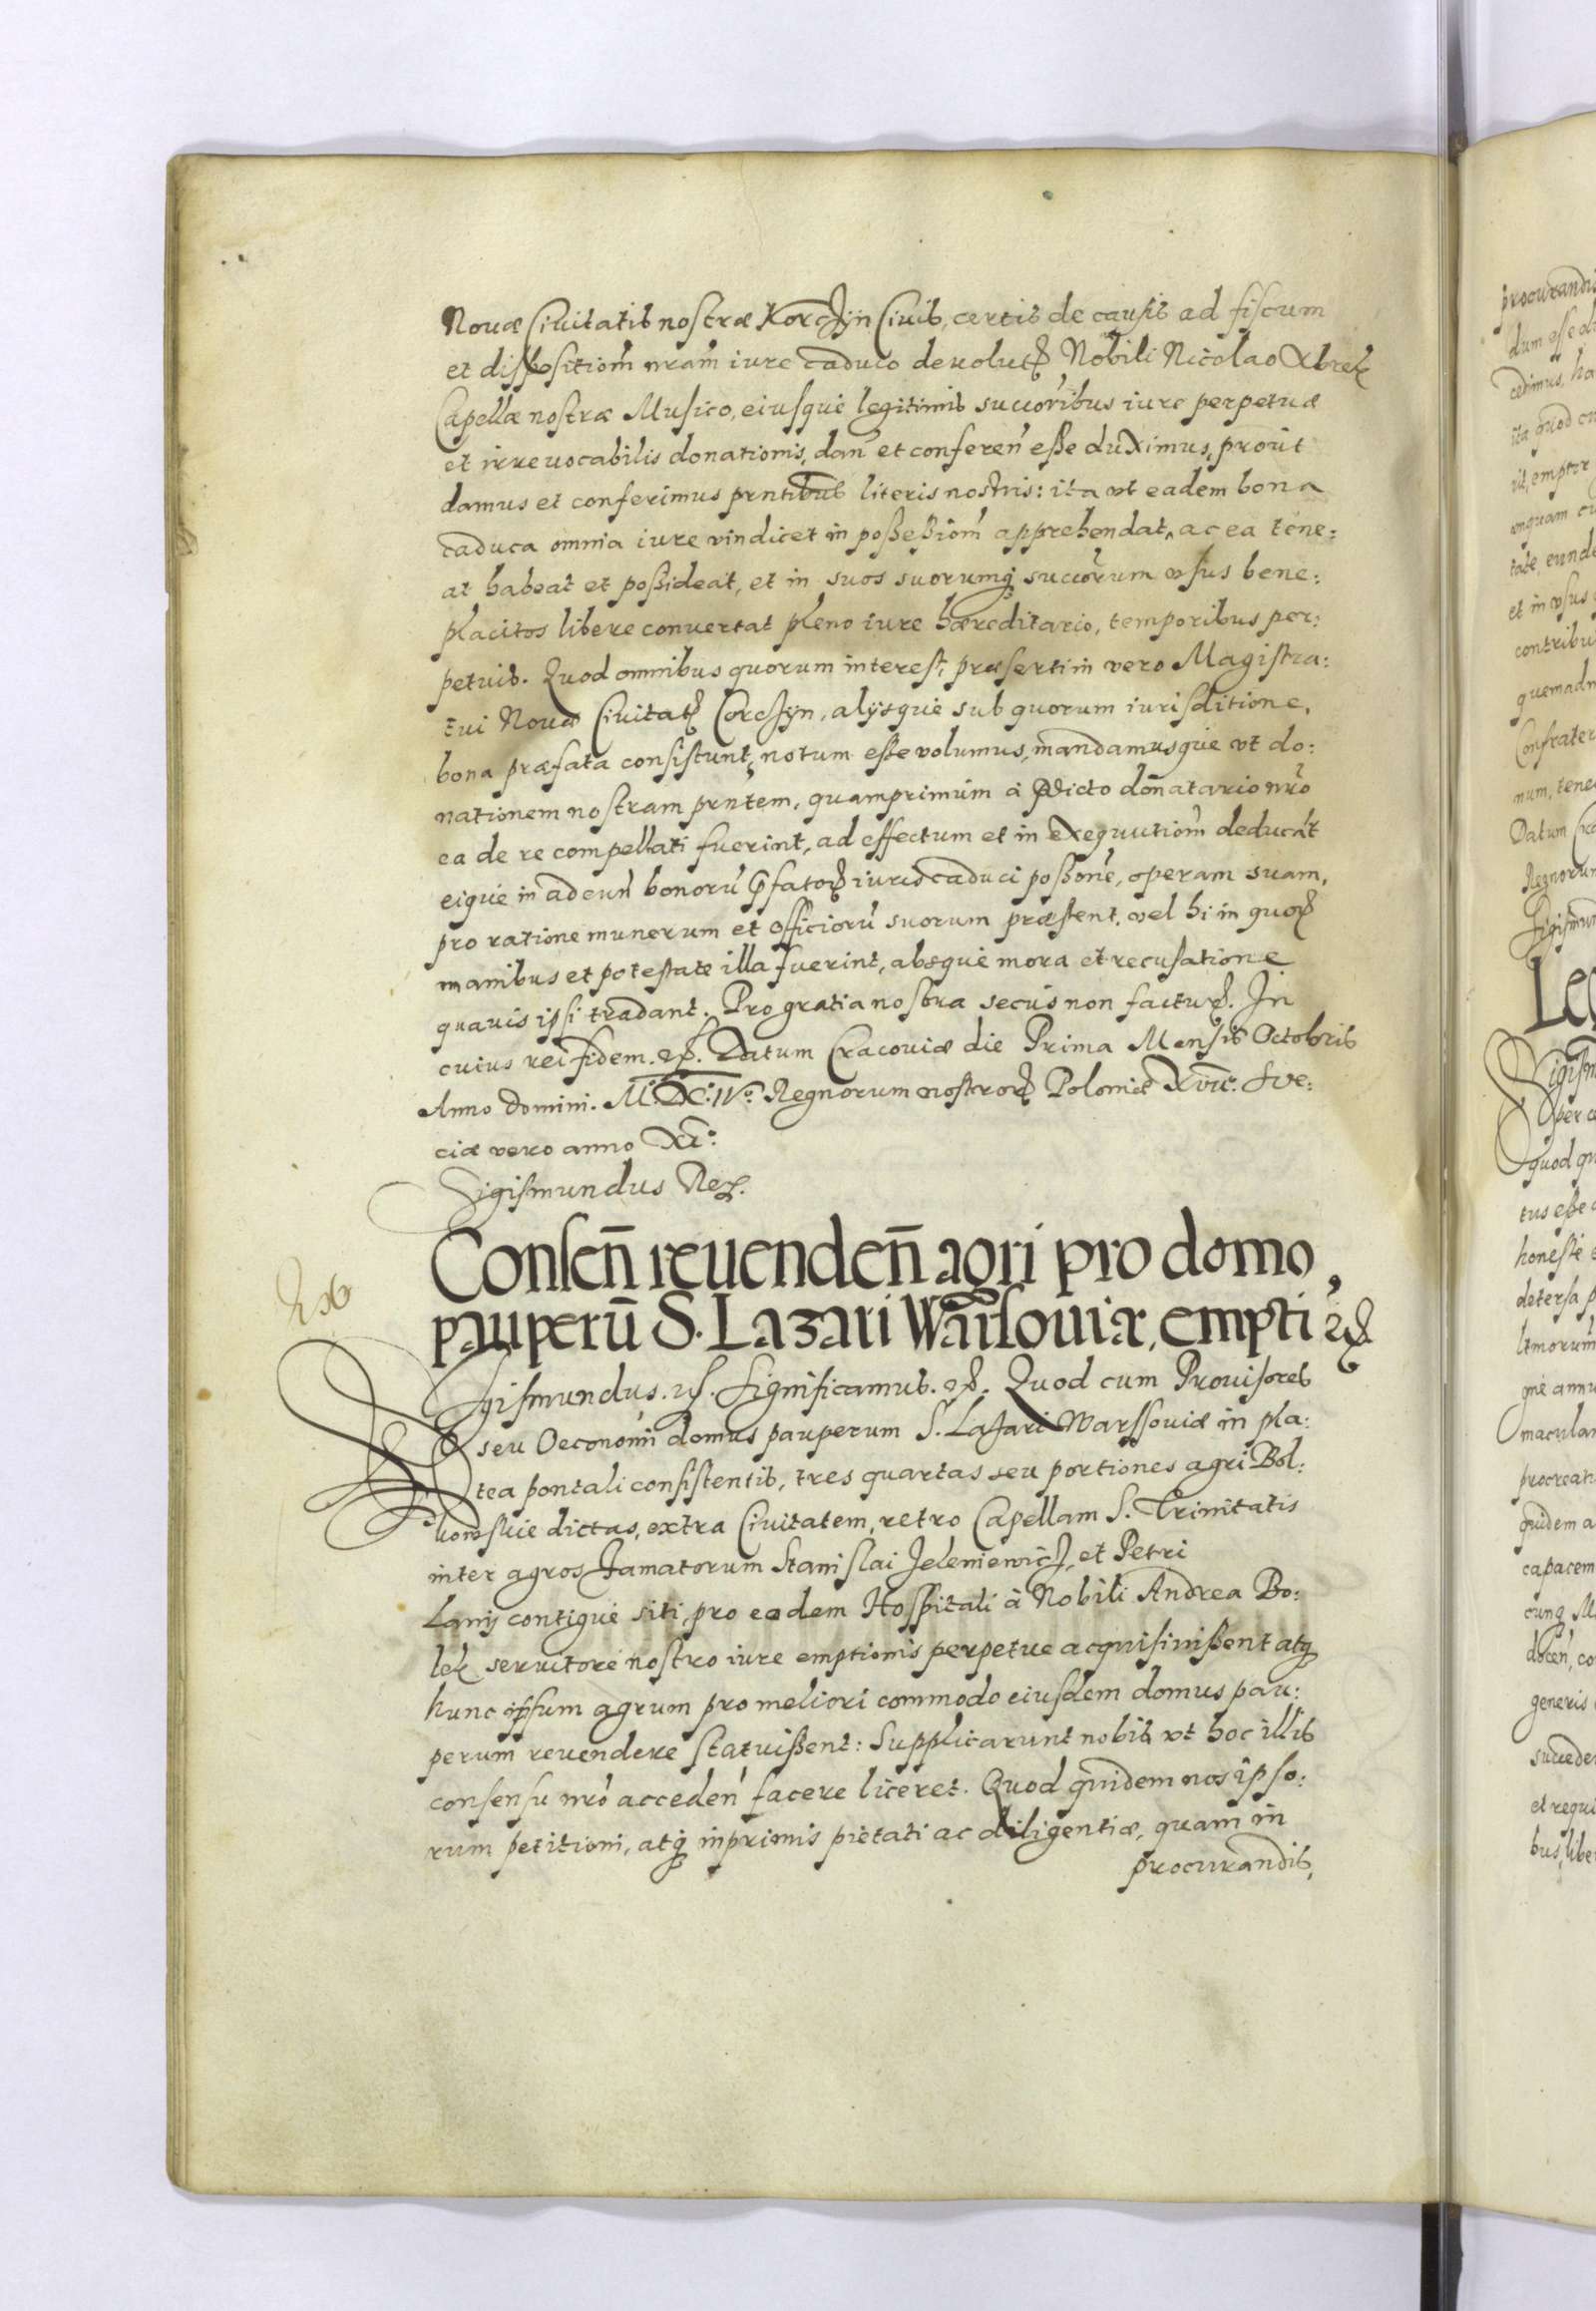 Nouæ Ciuitatis nostræ Korczÿn Ciuis, certis de causis ad fiscum
et dispositiom̃ nram̃ iure caduco deuolut. Nobili Nicolao
Capellæ nostræ Musico, eiusque legitimis succoribus iure perpetuæ
et irreuocabilis donationis, dan̄ et conferen̄ eße duximus, prout
damus et conferimus prntibus literis nostris: ita vt eadem bona
caduca omnia iure vindicet in poßeßiom̃ apprehendat, ac ea tene:
at habeat et poßideat, et in suos suorumq succorum vsus bene:
placitos libere conuertat pleno iure hæreditario, temporibus per:
petuis. Quod omnibus quorum interest, præsertim vero Magistra:
tui Nouæ Ciuitat. Corczÿn, alÿsque sub quorum iurisditione,
bona præfata consistunt, notum eße volumus, mandamusque vt do:
nationem nostram prntem, quamprimum à pdicto donatario nro
ea de re compellati fuerint, ad effectum et in exequutiom̃ deducāt
eique in adeun̄ bonorū pfator. iuris caduci poßone, operam suam,
pro ratione munerum et officiorū suorum præstent, vel hi in quor.
manibus et potestate illa fuerint, absque mora et recusatione
quauis ipsi tradant. Pro gratia nostra secus non factur. In
cuius rei fidem. etc. Datum Cracouiæ die Prima Mensis Octobris
Anno Domini. M.DC.IVo. Regnorum nostror. Poloniæ XVII. Sue:
ciæ vero anno XI.
Sigismundus Rex.
Consen̄ reuenden̄ agri pro domo
pauperū S. Lazari Warssouiæ, empti etc
Sigismundus. etc. Significamus. etc. Quod cum Prouisores
seu Oeconomi domus pauperum S. Lazari Warssouiæ in pla:
tea pontali consistentis, tres quartas seu portiones agri Bol:
dictas, extra Ciuitatem, retro Capellam S. Trinitatis
inter agros Famatorum Stanislai Jeleniewicz, et Petri
Lanij contigue siti, pro eadem Hospitali à Nobili Andrea Bo:
lek seruitore nostro iure emptionis perpetue acquisiuißent atq
hunc ipsum agrum pro meliori commodo eiusdem domus pau:
perum reuendere statuißent: Supplicarunt nobis vt hoc illis
consensu nrō acceden̄ facere liceret. Quod quidem nos ipso:
rum petitioni, atq inprimis pietati ac diligentiæ, quam in
procurandis,